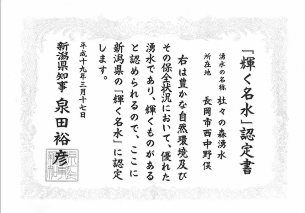 「輝く名水」認定書
湧水の名称 杜々の森湧水
所在地 長岡市西中野俣
右は豊かな自然環境及び
その保全状況において、優れた
湧水であり、輝くものがある
と認められるので、ここに
新潟県の「輝く名水」に認定
します。
平成十九年三月十七日
新潟県知事 泉田裕彦